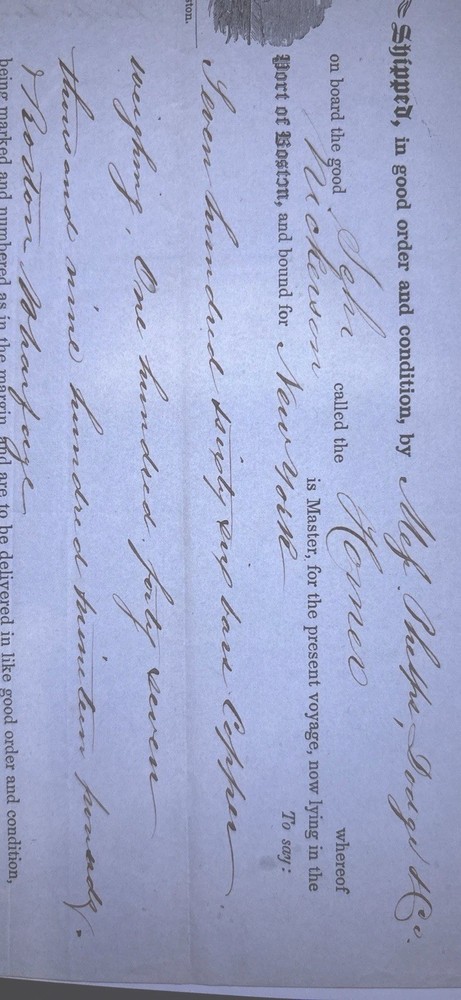 Shipped, in good order and condition, by Mess. Phelps, Dodge & Co.
on board the good Schr called the Horner whereof
Nickerson is Master, for the present voyage, now lying in the
Port of Boston, and bound for New York To say:
ston.
Seven hundred sixty six bars Copper
weighing, One hundred forty seven
thousand nine hundred nineteen pounds.
Boston Wharfage
being marked and numbered as in the margin and are to be delivered in like good order and condition,